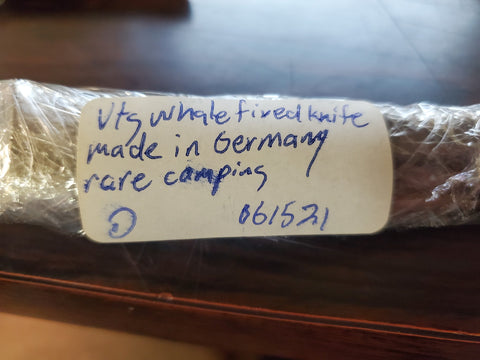 Vtg whale fixed knife
made in Germany
rare camping
061521